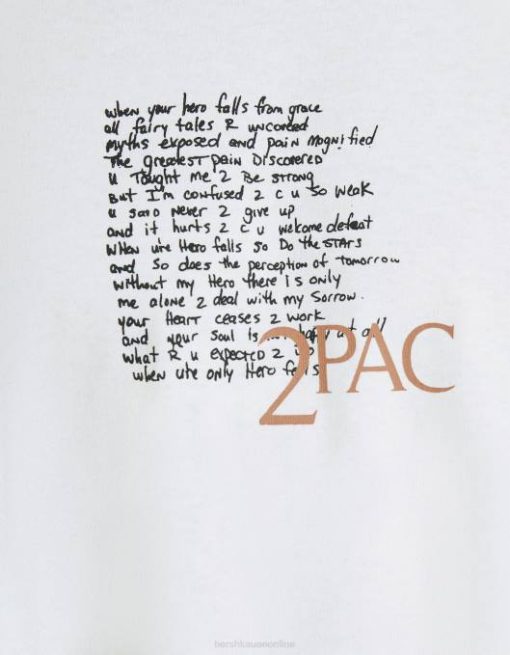 when your hero falls from grace
all fairy tales R uncovered
myths exposed and pain magnified
The greatest pain Discovered
u Taught me 2 Be strong
But I'm confused 2 c u so weak
u said Never 2 give up
and it hurts 2 c u welcome defeat
when ure Hero falls so Do the STARS
and so does the perception of tomorrow
without my Hero there is only
me alone 2 deal with my Sorrow.
your Heart ceases 2 work
and your soul is not happy at all
what R u expected 2 do
when ure only Hero falls
2PAC
bershkaueonline